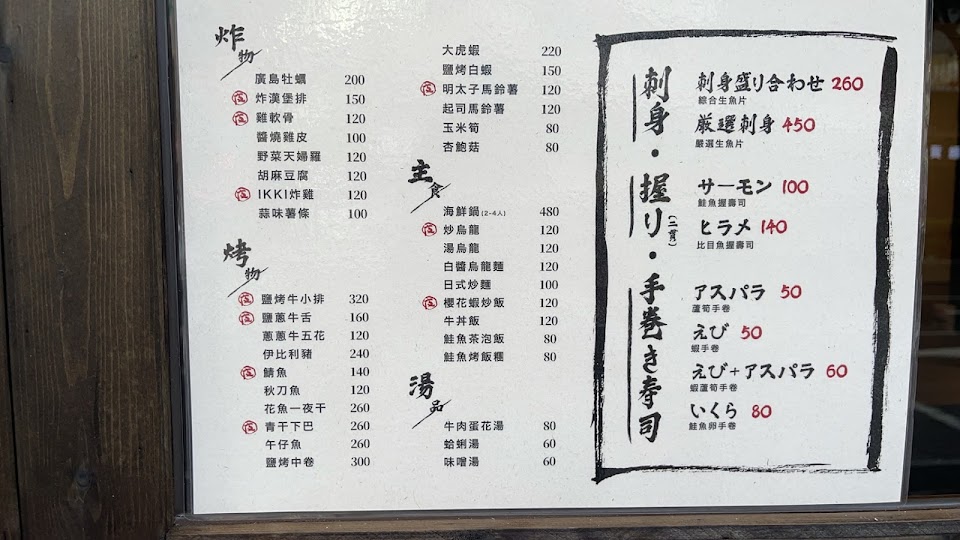 炸物
廣島牡蠣 200
炸漢堡排 150
雞軟骨 120
醬燒雞皮 100
野菜天婦羅 120
胡麻豆腐 120
IKKI炸雞 120
蒜味薯條 100
烤物
鹽烤牛小排 320
鹽蔥牛舌 160
蔥蔥牛五花 120
伊比利豬 240
鯖魚 140
秋刀魚 120
花魚一夜干 260
青干下巴 260
午仔魚 260
鹽烤中卷 300
大虎蝦 220
鹽烤白蝦 150
明太子馬鈴薯 120
起司馬鈴薯 120
玉米筍 80
杏鮑菇 80
主食
海鮮鍋(2-4人) 480
炒烏龍 120
湯烏龍 120
白醬烏龍麵 120
日式炒麵 100
櫻花蝦炒飯 120
牛丼飯 120
鮭魚茶泡飯 80
鮭魚烤飯糰 80
湯品
牛肉蛋花湯 80
蛤蜊湯 60
味噌湯 60
刺身・握り(二貫)・手巻き寿司
刺身盛り合わせ 260
綜合生魚片
厳選刺身 450
嚴選生魚片
サーモン 100
鮭魚握壽司
ヒラメ 140
比目魚握壽司
アスパラ 50
蘆筍手卷
えび 50
蝦手卷
えび+アスパラ 60
蝦蘆筍手卷
いくら 80
鮭魚卵手卷